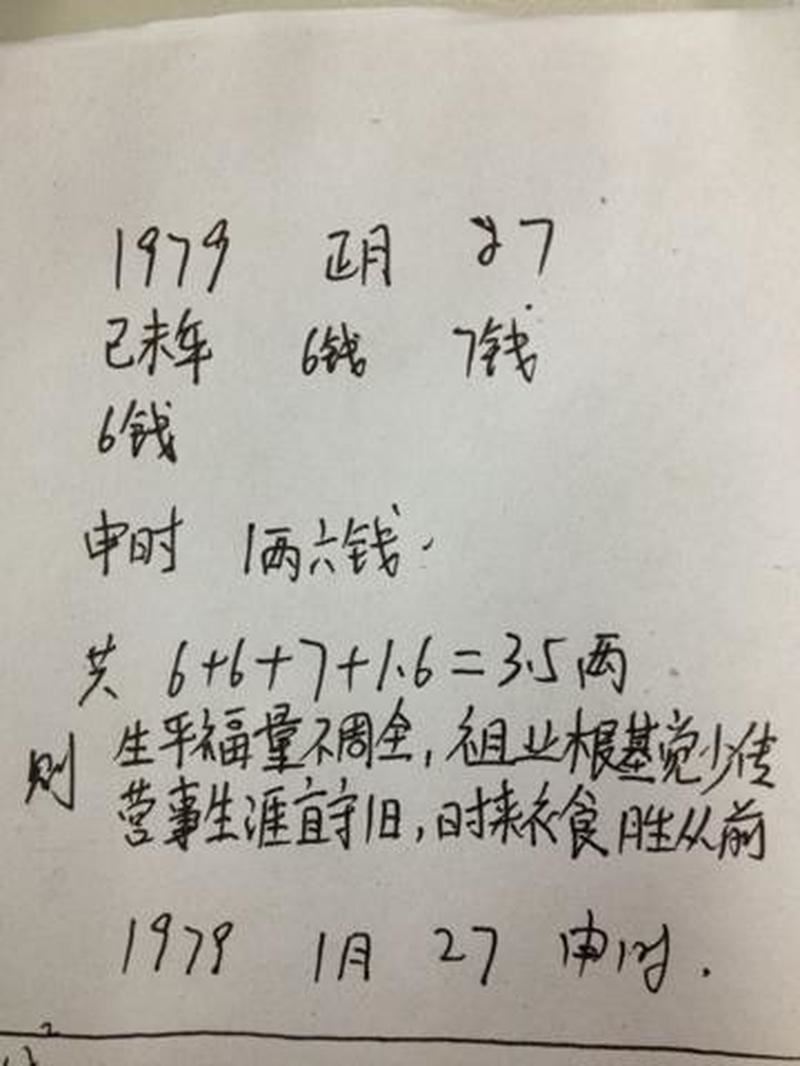 1979 正月 27
己未年 6钱 7钱
6钱
申时 1两六钱.
共 6+6+7+1.6=3.5两
则 生平福量不周全,祖业根基觉少传
营事生涯宜守旧,时来衣食胜从前
1979 1月 27 申时.